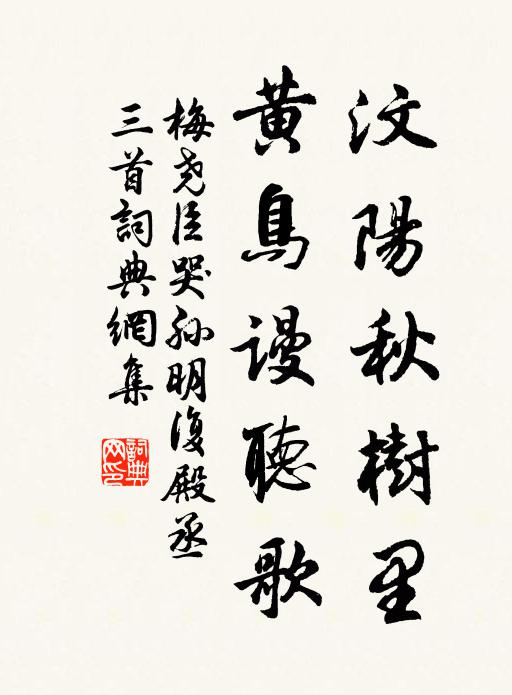 汶陽秋樹里
黄鳥謾聽歌
梅尧臣哭孙明復殿丞
三首詞典網集
詞典網印